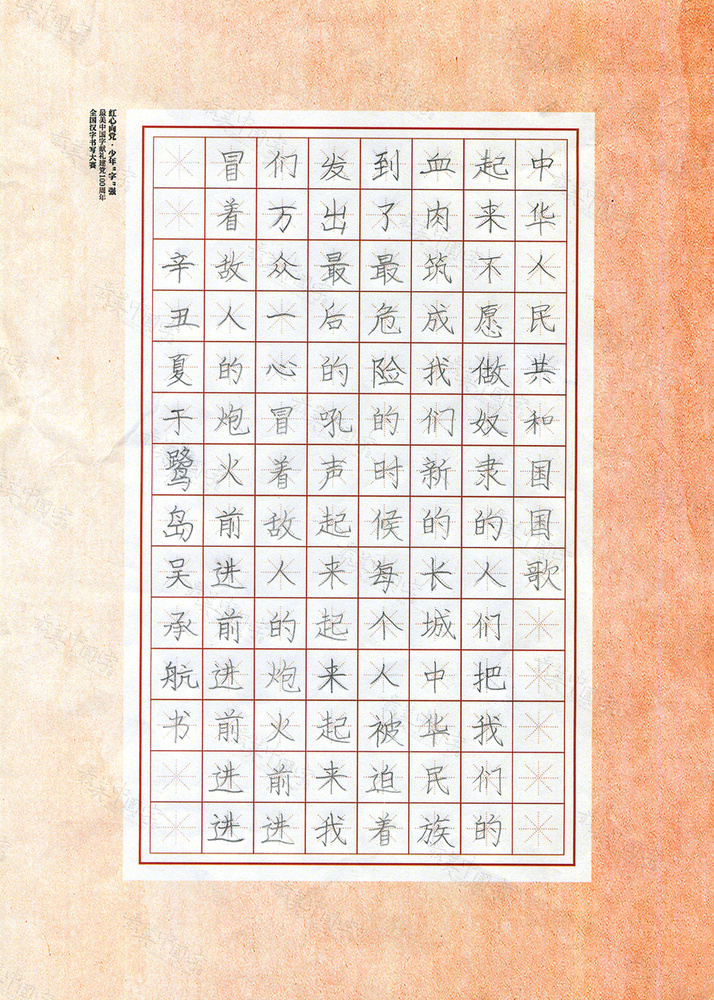 红心向党·少年“字”强
最美中国字献礼建党100周年
全国汉字书写大赛
中华人民共和国国歌
起来不愿做奴隶的人们把我们的
血肉筑成我们新的长城中华民族
到了最危险的时候每个人被迫着
发出最后的吼声起来起来起来我
们万众一心冒着敌人的炮火前进
冒着敌人的炮火前进前进前进进
辛丑夏于鹭岛吴承航书